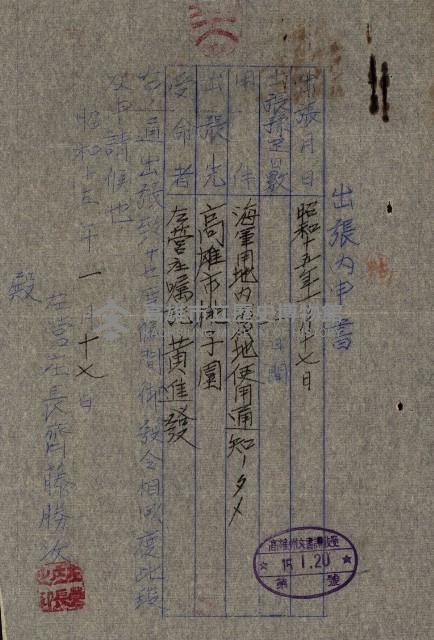 出張内申書
出張月日 昭和十五年一月十七日
出張予定日數 一日間
用件 海軍用地内墓地使用通知ノタメ
出張先 高雄市桃子園
受命者 左營庄囑託 黃進發
右ノ通出張
及申請候也
昭和十五年一月十七日
左營庄長齊藤勝次
殿
高雄州文書課收受
15.1.20
第 號
高雄市立歷史博物館